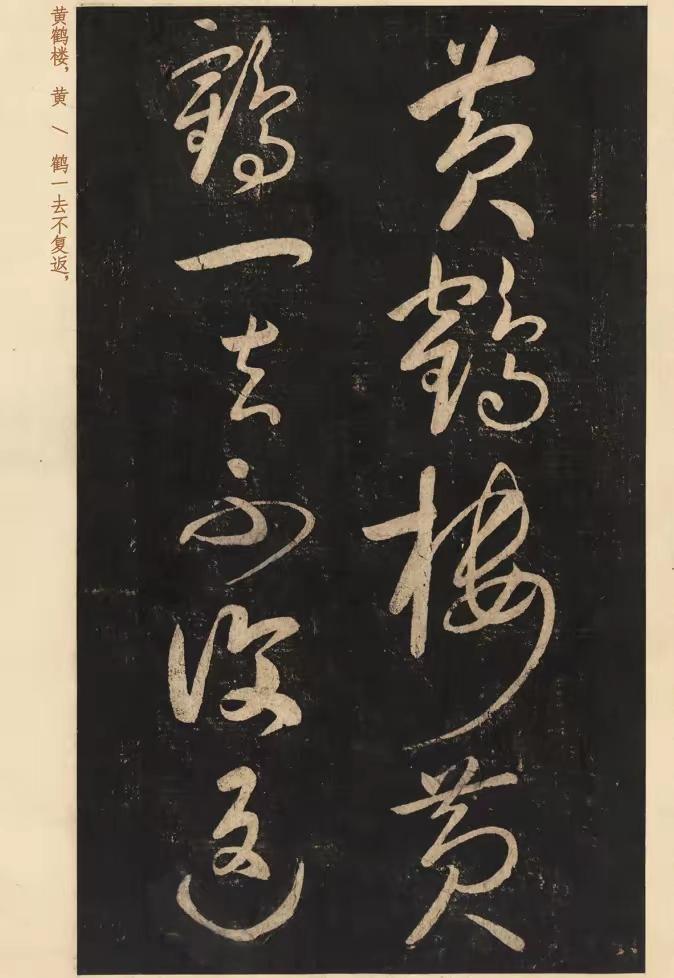 黄鹤楼，黄 \ 鹤一去不复返，
黄鶴樓黄
鶴一去不復返